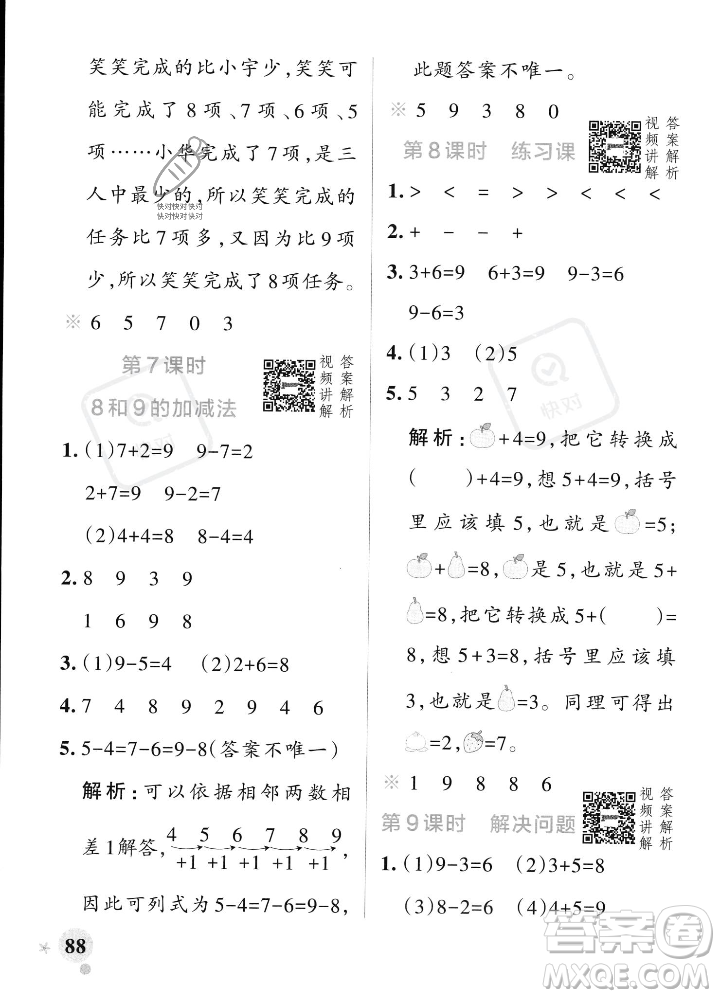 笑笑完成的比小宇少，笑笑可
能完成了8项、7项、6项、5
项……小华完成了7项，是三
人中最少的，所以笑笑完成的
任务比7项多，又因为比9项
少，所以笑笑完成了8项任务。
快对快对快对
快对快对快对
※ 6 5 7 0 3
第7课时
8和9的加减法
视频讲解
答案解析
1. (1)7+2=9 9-7=2
2+7=9 9-2=7
(2)4+4=8 8-4=4
2. 8 9 3 9
1 6 9 8
3. (1)9-5=4 (2)2+6=8
4. 7 4 8 9 2 9 4 6
5. 5-4=7-6=9-8(答案不唯一)
解析：可以依据相邻两数相
差1解答，4 5 6 7 8 9，
+1 +1 +1 +1 +1
因此可列式为5-4=7-6=9-8，
88
此题答案不唯一。
※ 5 9 3 8 0
第8课时 练习课
视频讲解
答案解析
1. > < = > > < < <
2. + - - +
3. 3+6=9 6+3=9 9-3=6
9-6=3
4. (1)3 (2)5
5. 5 3 2 7
快对
解析：+4=9，把它转换成
( )+4=9，想5+4=9，括号
里应该填5，也就是=5；
+=8，是5，也就是5+
=8，把它转换成5+( )
=8，想5+3=8，括号里应该填
3，也就是=3。同理可得出
=2，=7。
※ 1 9 8 8 6
第9课时 解决问题
视频讲解
答案解析
1. (1)9-3=6 (2)3+5=8
(3)8-2=6 (4)9-6=3
答案圈
MXQE.COM